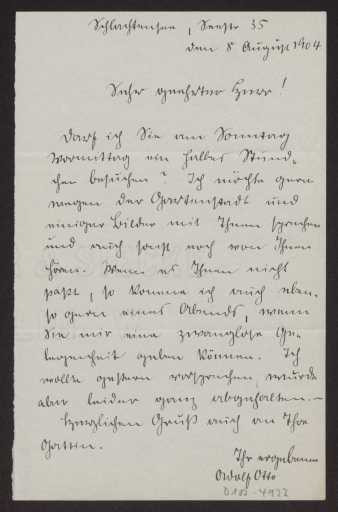 Schlachtensee, Seestr 35
den 8 August 1904
Sehr geehrter Herr!
Darf ich Sie am Sonntag
Vormittag ein halbes Stünd-
chen besuchen? Ich möchte gern
wegen der Gartenstadt und
einiger Bilder mit Ihnen sprechen
und auch sonst noch von Ihnen
hören. Wenn es Ihnen nicht
paßt, so komme ich auch eben-
so gern eines Abends, wenn
Sie mir eine zwanglose Ge-
legenheit geben können. Ich
wollte gestern vorsprechen, wurde
aber leider ganz abgehalten. –
Herzlichen Gruß auch an Ihre
Gattin.
Ihr ergebener
Adolf Otto
D105-4922